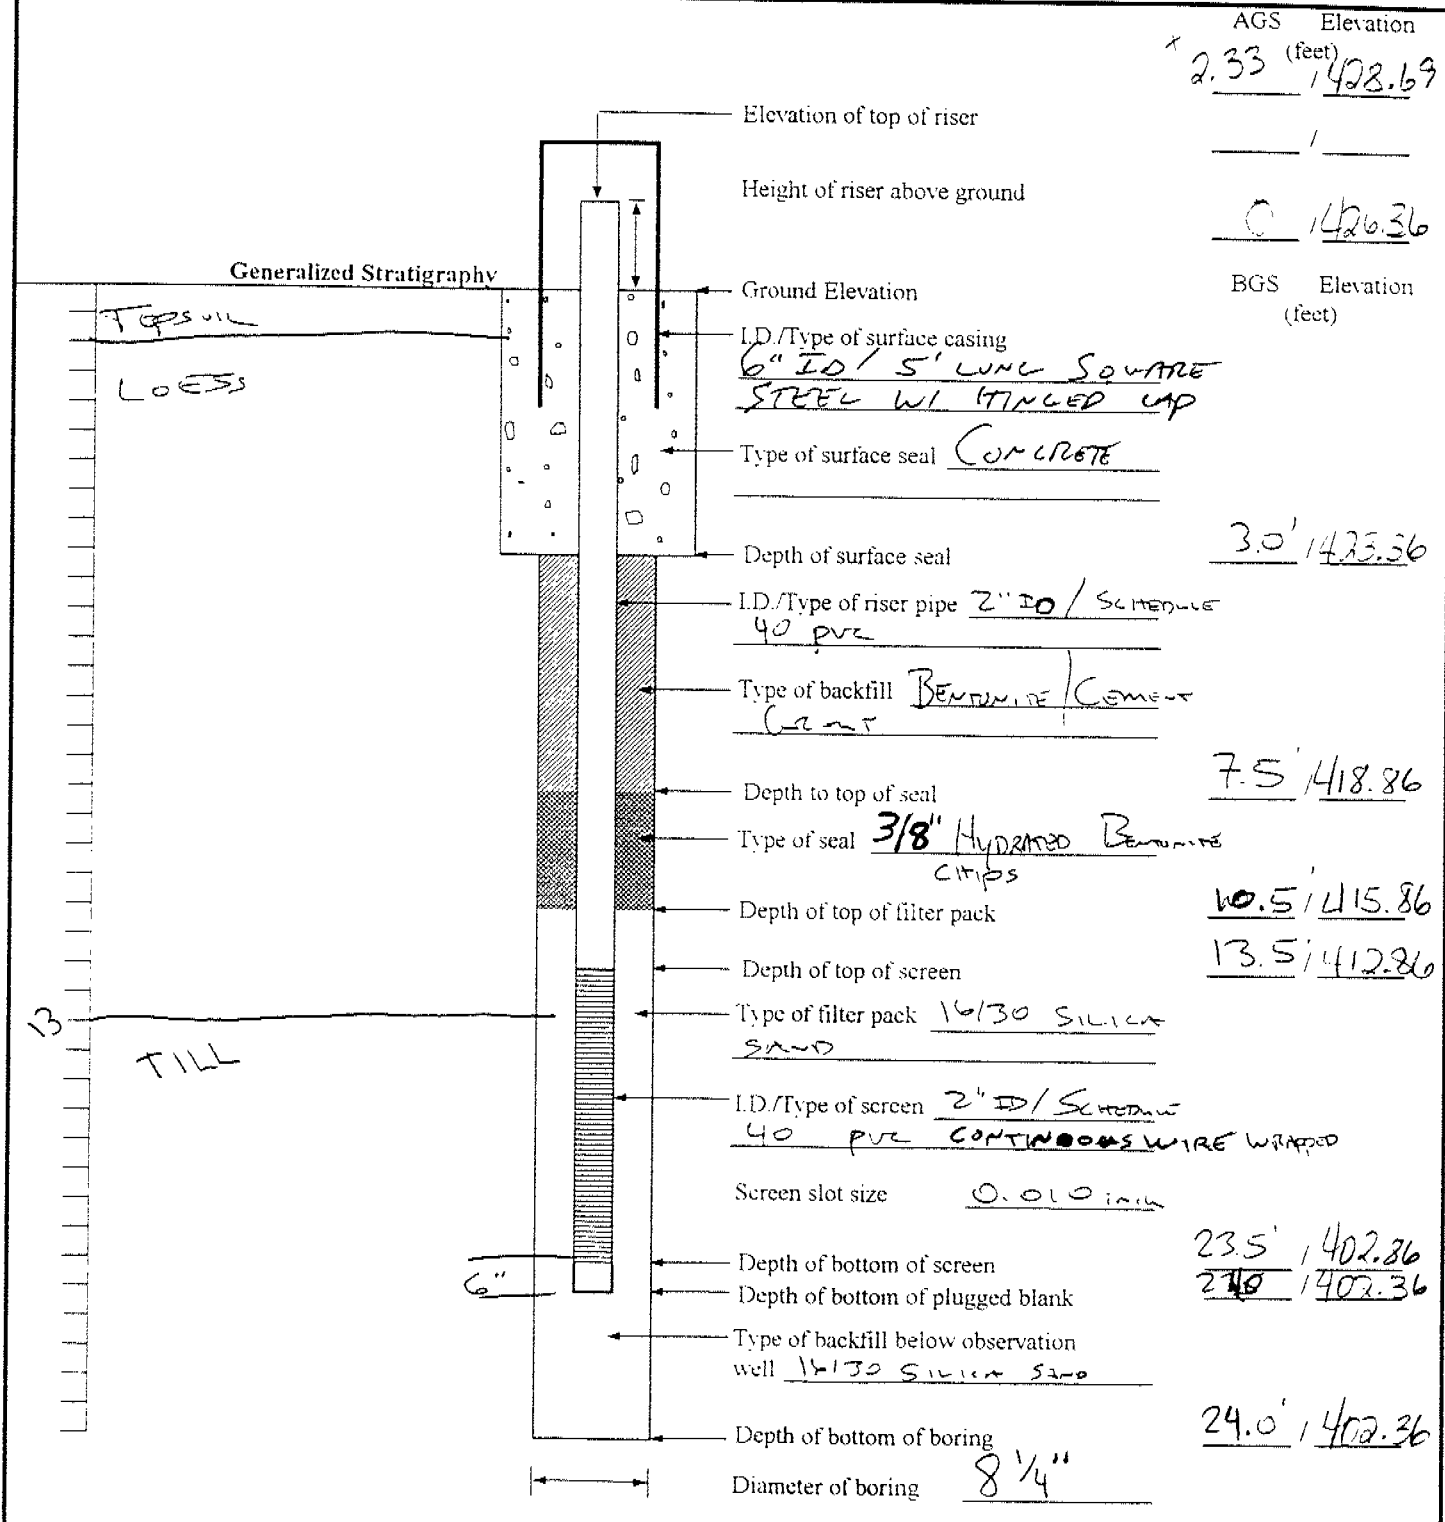 AGS Elevation
(feet)
x 2.33 / 428.69
Elevation of top of riser
/
Height of riser above ground
0 / 426.36
Generalized Stratigraphy
Ground Elevation
BGS Elevation
(feet)
TOPSOIL
I.D./Type of surface casing
6" ID / 5' LONG SQUARE
STEEL W/ HINGED CAP
LOESS
Type of surface seal CONCRETE
Depth of surface seal 3.0' / 423.36
I.D./Type of riser pipe 2" ID / SCHEDULE
40 PVC
Type of backfill BENTONITE / CEMENT
GROUT
Depth to top of seal 7.5' / 418.86
Type of seal 3/8" HYDRATED BENTONITE
CHIPS
Depth of top of filter pack 10.5' / 415.86
Depth of top of screen 13.5' / 412.86
13
Type of filter pack 16/30 SILICA
SAND
TILL
I.D./Type of screen 2" ID / SCHEDULE
40 PVC CONTINUOUS WIRE WRAPPED
Screen slot size 0.010 inch
Depth of bottom of screen 23.5' / 402.86
6"
Depth of bottom of plugged blank / 402.36
Type of backfill below observation
well 16/30 SILICA SAND
Depth of bottom of boring 24.0' / 402.36
Diameter of boring 8 1/4"